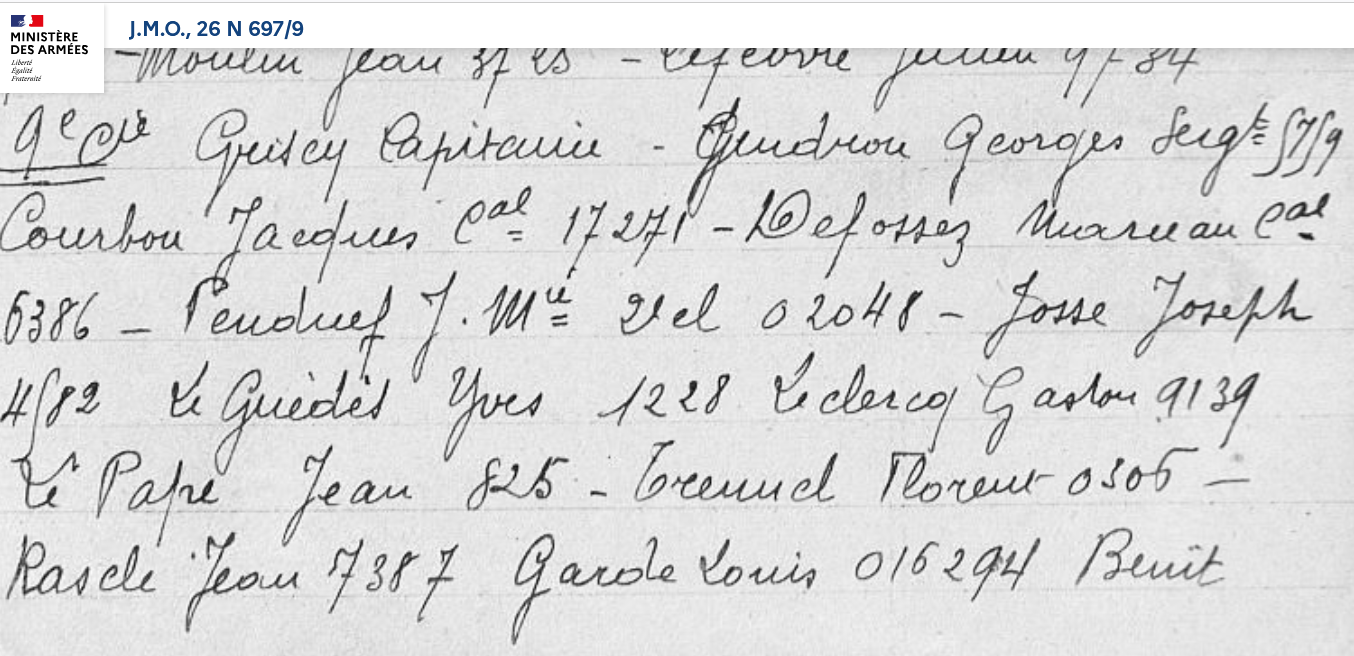 MINISTÈRE
DES ARMÉES
Liberté
Égalité
Fraternité
J.M.O., 26 N 697/9
- Moulin Jean 3725 - Lefebvre Julien 9734
9e Cie Griscy Capitaine - Gendron Georges Sergt 5759
Courbou Jacques Cal 17271 - Defossez Marceau Cal
6386 - Penduef J. Mie 2e cl 02048 - Josse Joseph
4582 Le Guédès Yves 1228 Leclercq Gaston 9139
Le Pape Jean 825 - Florent 0305 -
Rascle Jean 7387 Garde Louis 016294 Benoît